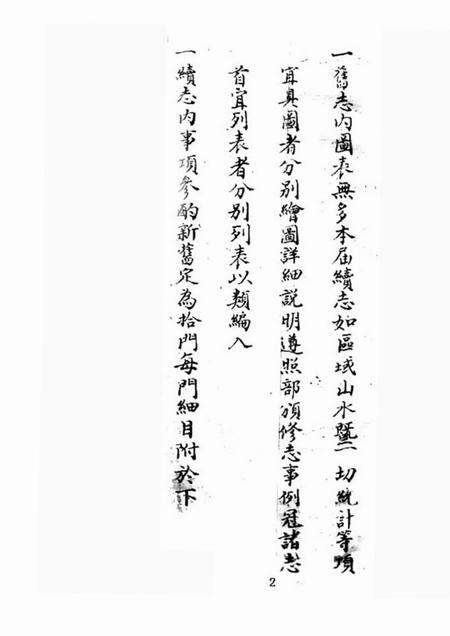 一舊志內圖表無多本屆續志如區域山水暨一切統計等項
宜具圖者分別繪圖詳細說明遵照部頒修志事例冠諸志
首宜列表者分別列表以類編入
一續志內事項參酌新舊定為拾門每門細目附於下
2